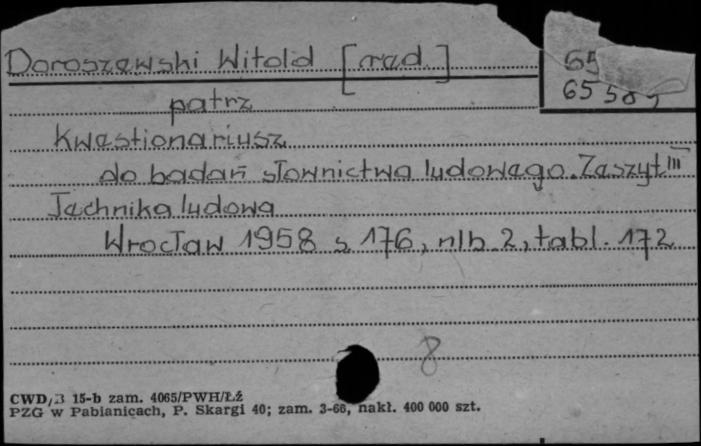 Doroszewski Witold [red.]
65
65 585
patrz
Kwestionariusz
do badań słownictwa ludowego. Zeszyt III
Technika ludowa
Wrocław 1958 s 176, nlb 2, tabl. 172
8
CWD/3 15-b zam. 4065/PWH/Łź
PZG w Pabianicach, P. Skargi 40; zam. 3-66, nakł. 400 000 szt.